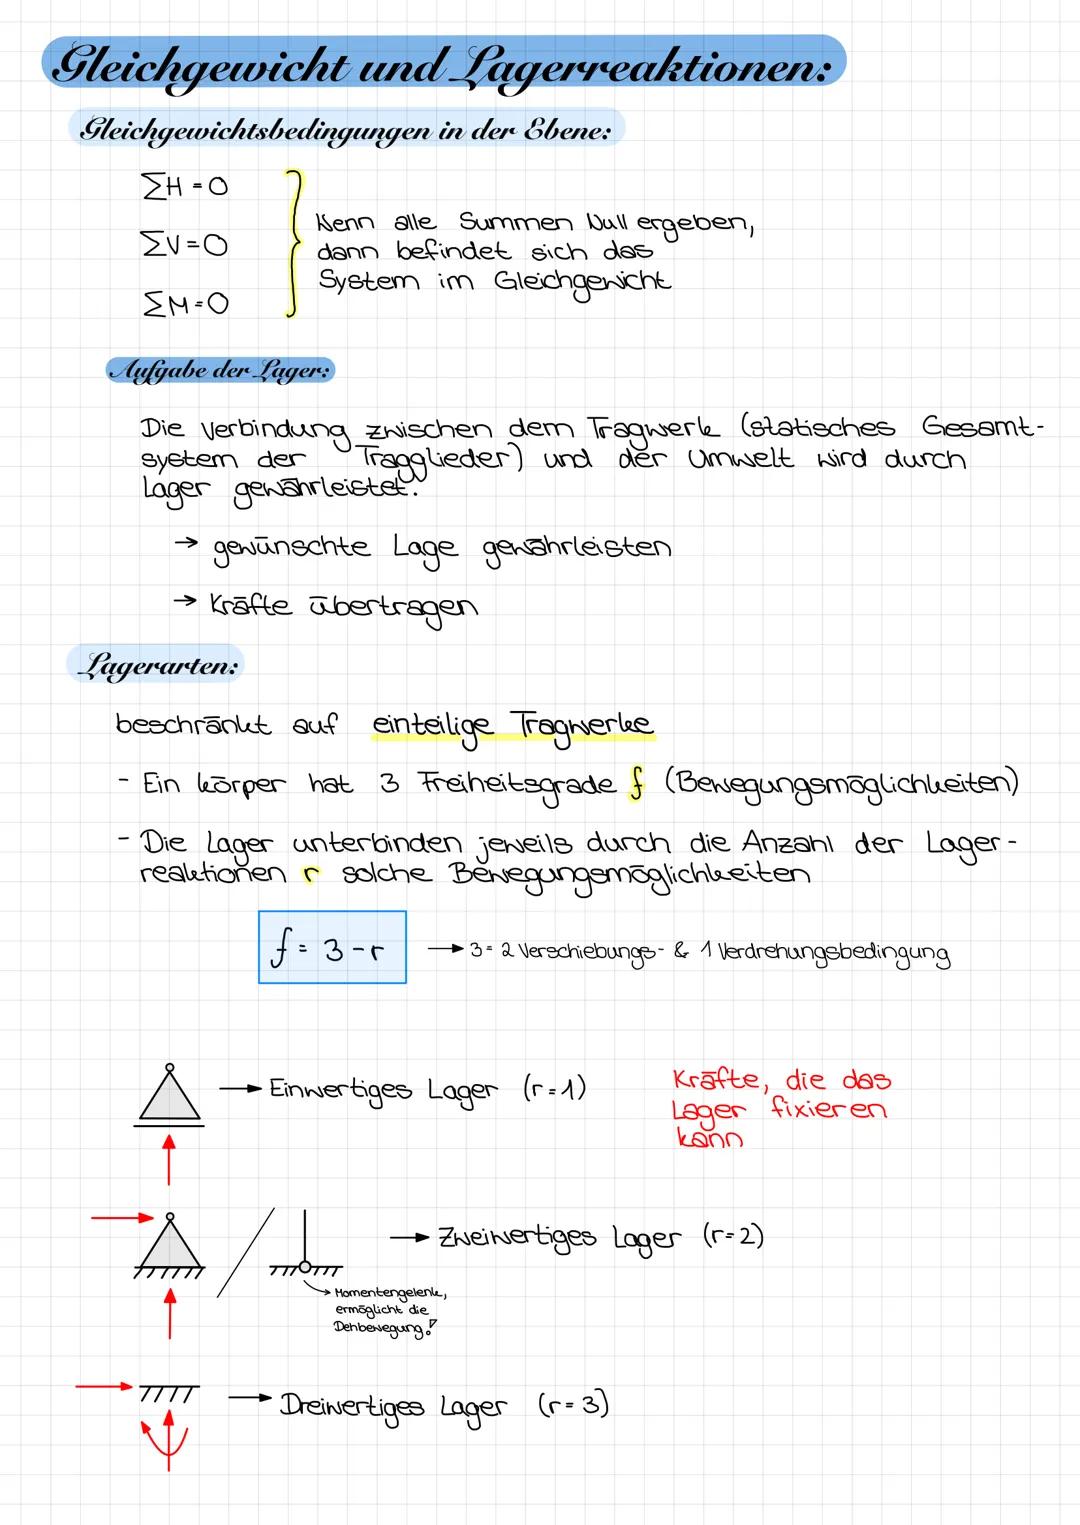 Gleichgewicht und Lagerreaktionen:
Gleichgewichtsbedingungen in der Ebene:
∑H = 0
∑V = 0
∑M = 0
Wenn alle Summen Null ergeben,
dann befindet sich das
System im Gleichgewicht
Aufgabe der Lager:
Die Verbindung zwischen dem Tragwerk (statisches Gesamt-
system der Tragglieder) und der Umwelt wird durch
Lager gewährleistet.
→ gewünschte Lage gewährleisten
→ Kräfte übertragen
Lagerarten:
beschränkt auf einteilige Tragwerke
- Ein Körper hat 3 Freiheitsgrade f (Bewegungsmöglichkeiten)
- Die Lager unterbinden jeweils durch die Anzahl der Lager-
reaktionen r solche Bewegungsmöglichkeiten
f = 3 - r → 3 = 2 Verschiebungs- & 1 Verdrehungsbedingung
→ Einwertiges Lager (r = 1)
Kräfte, die das
Lager fixieren
kann
→ Zweiwertiges Lager (r = 2)
→ Momentengelenk,
ermöglicht die
Dehbewegung!
→ Dreiwertiges Lager (r = 3)